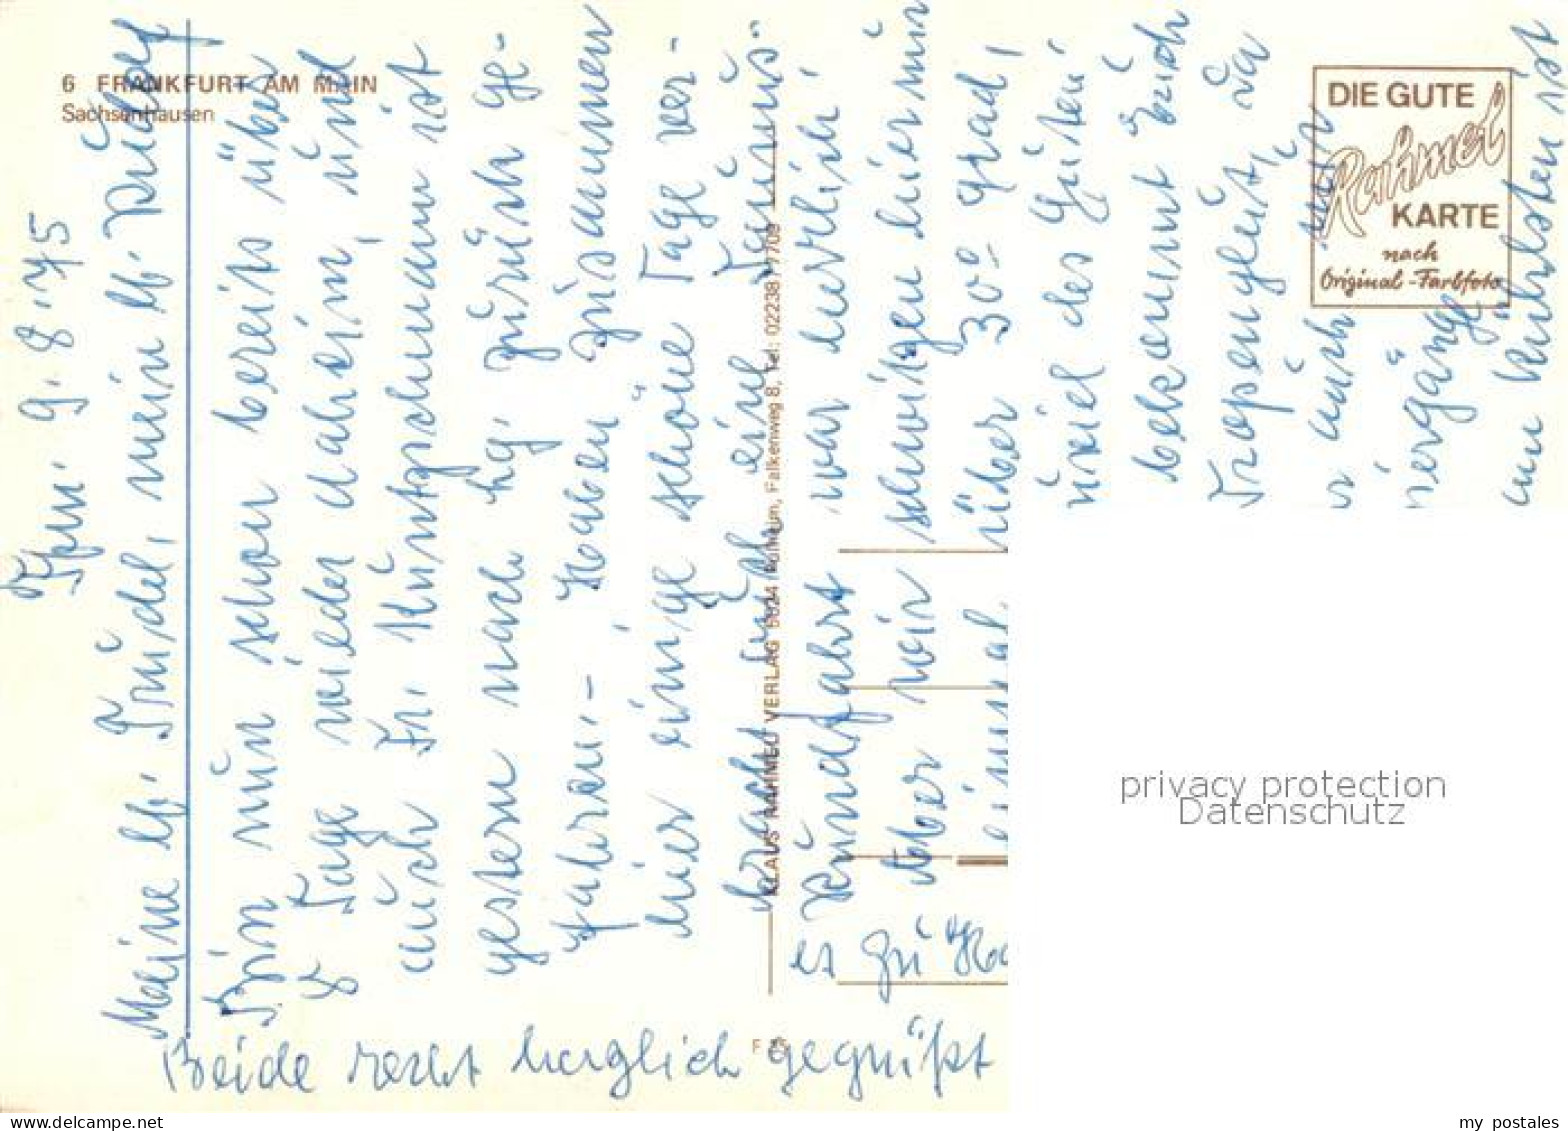 6 FRANKFURT AM MAIN
Sachsenhausen
DIE GUTE
Rahmel
KARTE
nach
Original-Farbfoto
KLAUS RAHMEL VERLAG 5024 Pulheim, Falkenweg 8, Tel: 02238 / 7709
F
9.8.75
Meine lb. Trudel, mein lb. Rudolf
Bin nun schon bereits über
8 Tage wieder daheim, und
auch Fr. Kunzschmann ist
gestern nach zurück ge-
fahren.- Haben zusammen
hier einige schöne Tage ver-
bracht auch eine Taunus-
Rundfahrt war herrlich
Aber wir schwitzen hier nun
einmal über 30° Grad,
zuviel des Guten
bekommt Euch
Tropenglut, da
auch nur
am kühlsten ist
es zu
Beide recht herzlich gegrüßt
privacy protection
Datenschutz
my postales